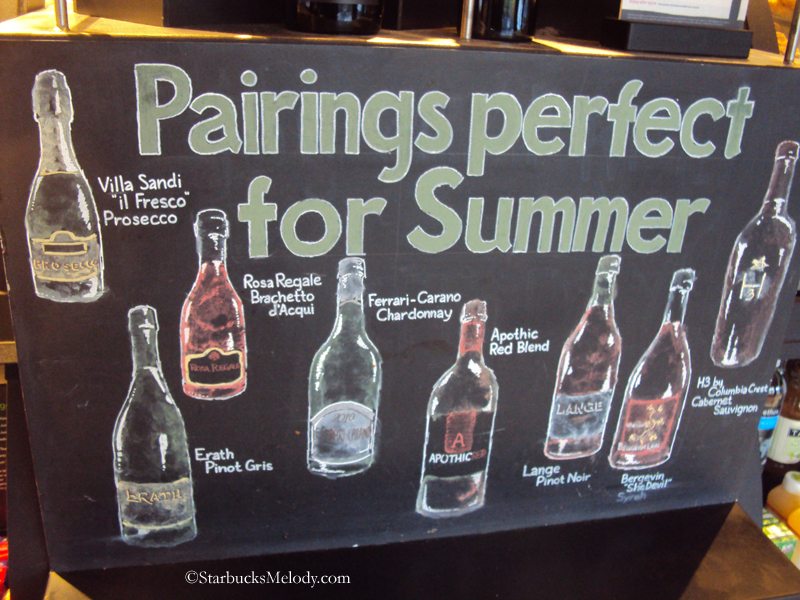 Pairings perfect
for Summer
Villa Sandi
"il Fresco"
Prosecco
PROSECCO
Rosa Regale
Brachetto
d'Acqui
ROSA REGALE
Ferrari-Carano
Chardonnay
Apothic
Red Blend
A
APOTHIC RED
Erath
Pinot Gris
ERATH
LANGE
Lange
Pinot Noir
Bergevin
"She Devil"
Syrah
H3
H3 by
Columbia Crest
Cabernet
Sauvignon
©StarbucksMelody.com